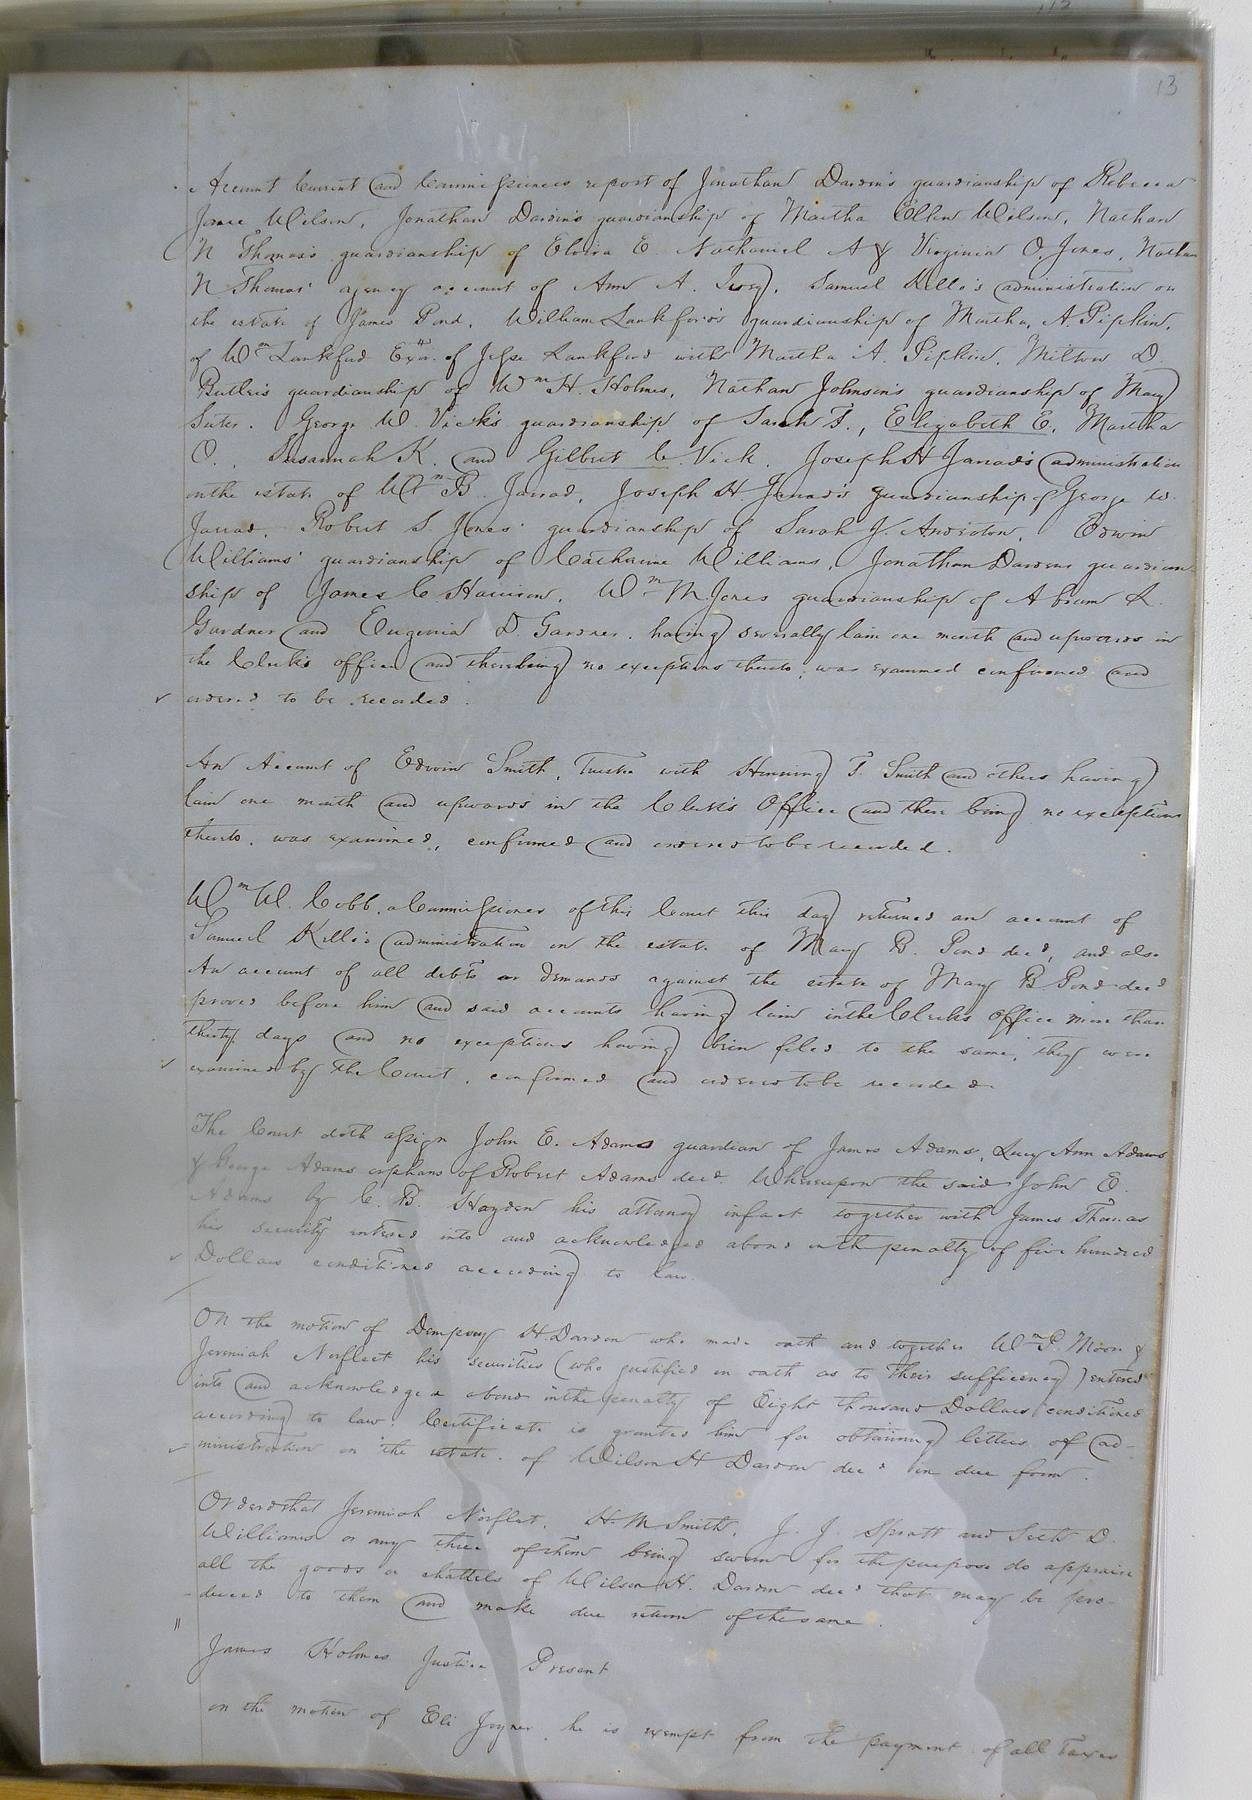 13
Account Current and Commissioners report of Jonathan Darden's guardianship of Rebecca
Jane Wilson, Jonathan Darden's guardianship of Martha Ellen Wilson, Nathan
N Thomas's guardianship of Elvira E Nathaniel A & Virginia O. Jones, Nathan
N Thomas' agency account of Ann A. Ivey, Samuel Kello's administration on
the estate of James Pond, William Lankford's guardianship of Martha, A. Pipkin,
of Wm Lankford Exor. of Jesse Lankford with Martha A. Pipkin, Milton D.
Butler's guardianship of Wm H. Holmes, Nathan Johnson's guardianship of Mary
Suter. George W Vick's guardianship of Sarah F., Elizabeth E, Martha
O., Susannah K. and Gilbert C. Vick. Joseph H Jarrad's administration
on the estate of Wm B. Jarrad, Joseph H. Jarrad's guardianship of George W.
Jarrad. Robert S. Jones' guardianship of Sarah J. Anderson, Edwin
Williams' guardianship of Catharine Williams, Jonathan Dardens guardian
ship of James C Harrison, Wm M Jones guardianship of Abram R.
Gardner and Eugenia D. Gardner. having severally lain one month and upwards in
the Clerk's office and there being no exceptions thereto, was examined confirmed and
ordered to be recorded.
An Account of Edwin Smith, Trustee with Henning T. Smith and others having
lain one month and upwards in the Clerk's Office and there being no exceptions
thereto, was examined, confirmed and ordered to be recorded.
Wm W. Cobb, a Commissioner of this Court this day returned an account of
Samuel Kello's administration on the estate of Mary B. Pond decd, and also
An account of all debts or demands against the estate of Mary B Pond decd
proved before him and said accounts having lain in the Clerks Office more than
thirty days and no exceptions having been filed to the same, they were
examined by the Court, confirmed and ordered to be recorded.
The Court doth assign John E. Adams guardian of James Adams, Lucy Ann Adams
& George Adams orphans of Robert Adams decd. Whereupon the said John E.
Adams by C. B. Hayden his attorney in fact together with James Thomas
his security entered into and acknowledged a bond in the penalty of five hundred
Dollars conditioned according to law.
On the motion of Dempsey H Darden who made oath and together Wm P. Moore &
Jeremiah Norfleet his securities (who justified on oath as to their sufficiency) entered
into and acknowledged a bond in the penalty of Eight thousand Dollars conditioned
according to law. Certificate is granted him for obtaining letters of ad-
ministration on the estate of Wilson H Darden decd in due form.
Ordered that Jeremiah Norfleet, H. M Smith, J. J. Spratt and Seth D.
Williams or any three of them being sworn for the purpose do appraise
all the goods or chattels of Wilson H. Darden decd that may be pro-
duced to them and make due return of the same.
James Holmes Justice Present
On the motion of Eli Joyner he is exempt from the payment of all taxes